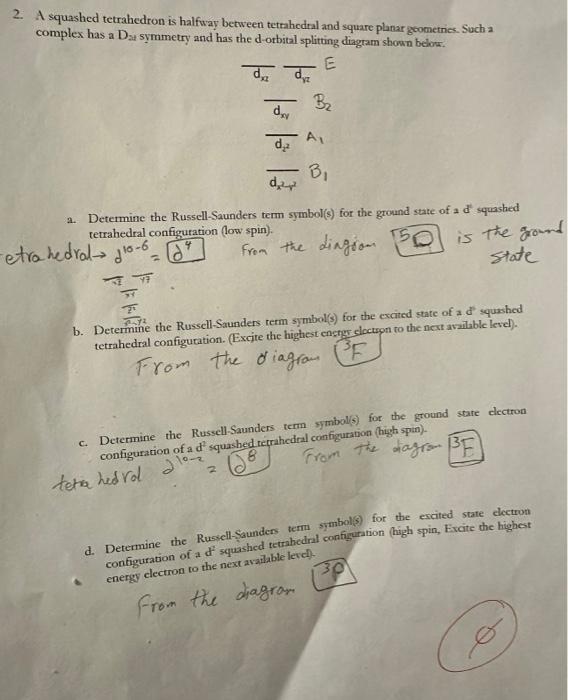 2. A squashed tetrahedron is halfway between tetrahedral and square planar geometries. Such a
complex has a D2d symmetry and has the d-orbital splitting diagram shown below.
dxz dyz E
dxy B2
dz² A1
dx²-y² B1
a. Determine the Russell-Saunders term symbol(s) for the ground state of a d⁶ squashed
tetrahedral configuration (low spin).
etrahedral → d10-6 = d4 From the diagram 5D is the ground
state
xz yz
xy
z²
x²-y²
b. Determine the Russell-Saunders term symbol(s) for the excited state of a d⁶ squashed
tetrahedral configuration. (Excite the highest energy electron to the next available level).
From the diagram 3F
c. Determine the Russell-Saunders term symbol(s) for the ground state electron
configuration of a d² squashed tetrahedral configuration (high spin).
tetrahedral d10-2 = d8 From the diagram 3F
d. Determine the Russell-Saunders term symbol(s) for the excited state electron
configuration of a d² squashed tetrahedral configuration (high spin, Excite the highest
energy electron to the next available level).
From the diagram 3P